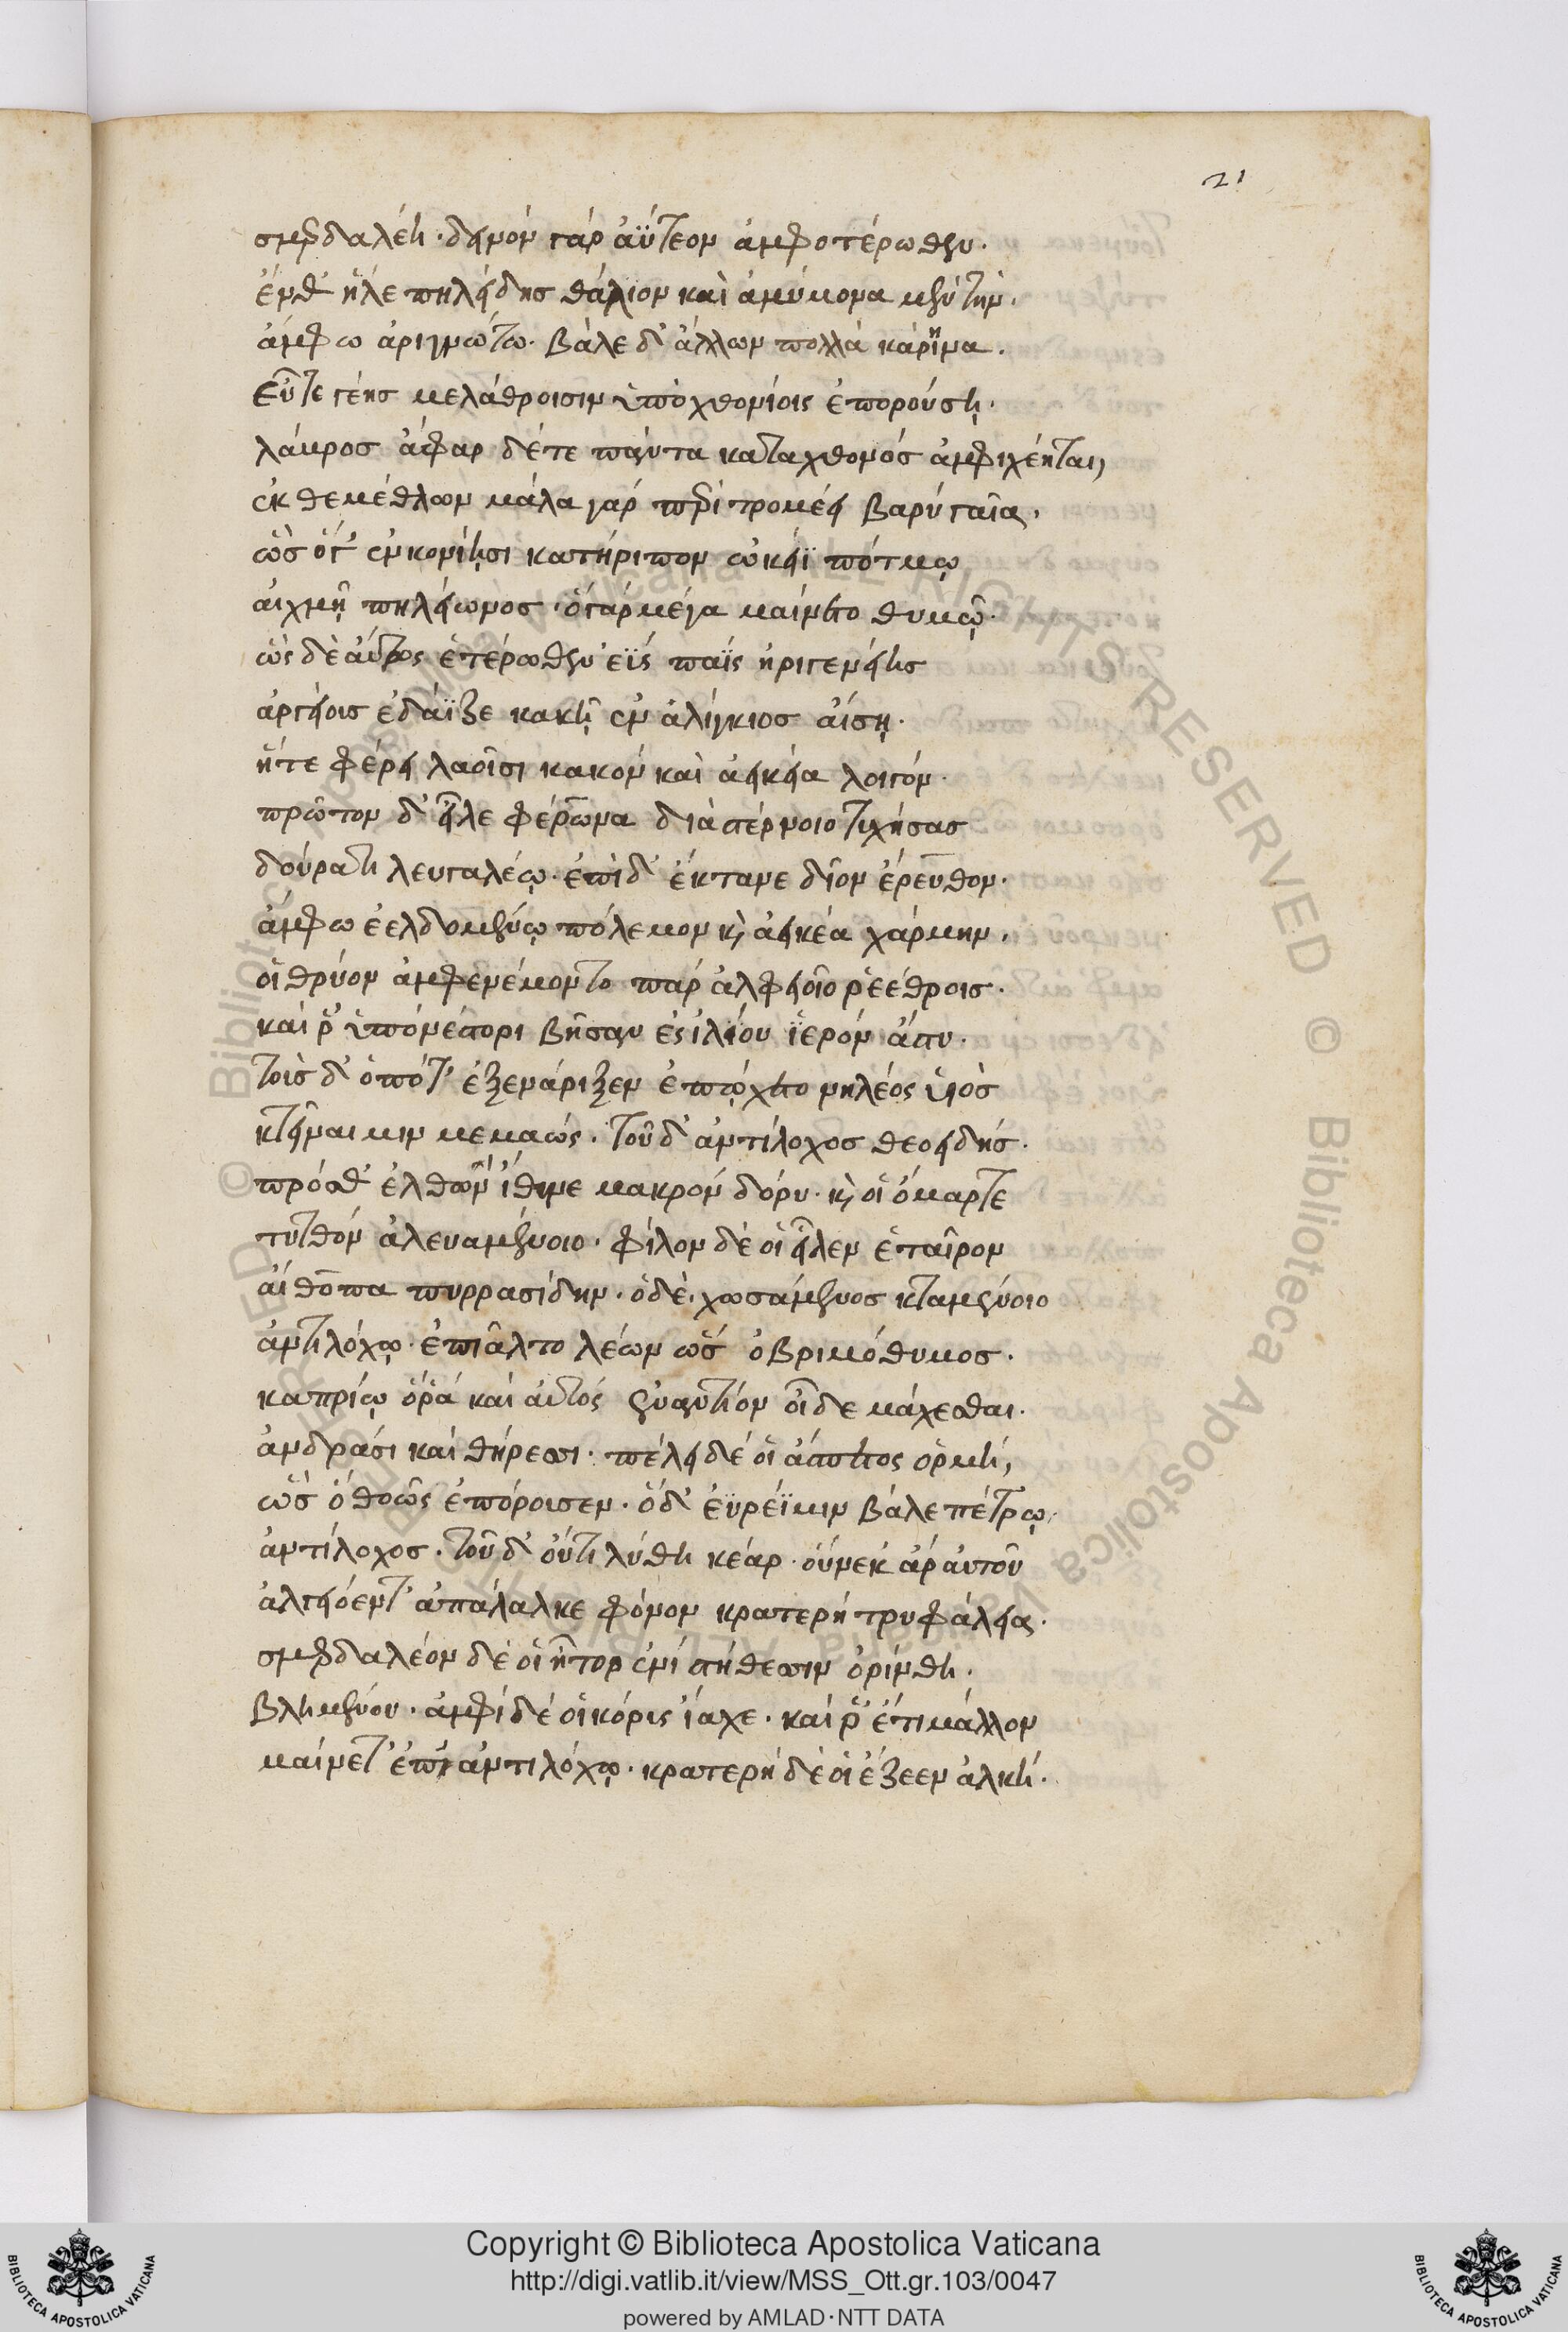 21
σμερδαλέη· δηρὸν γὰρ ἀΰτεον ἀμφοτέρωθεν·
ἔνθ' ἧλε πηλείδης θάλιον καὶ ἀμύμονα μέντην·
ἄμφω ἀριγνώτω· βάλε δ' ἄλλων πολλὰ κάρηνα·
εὖτε γέης μελάθροισιν ὑποχθονίοις ἐπορούσῃ·
λάυρος ἄφαρ δέτε πάντα καταχθονὸς ἀμφιχέηται,
ἐκ θεμέθλων μάλα γὰρ περιτρομέει βαρὺ γαῖα·
ὣς ὅγ' ἐν κονίῃσι κατήριπον ὠκέϊ πότμῳ
αἰχμῇ πηλείωνος· ὁ γὰρ μέγα μαίνετο θυμῷ·
ὣς δὲ αὔτως ἑτέρωθεν ἐῢς παῖς ἠριγενείης
ἀργείους ἐδάϊξε κακῇ ἐναλίγκιος αἴσῃ·
ἥτε φέρει λαοῖσι κακὸν καὶ ἀεικέα λοιγόν·
πρῶτον δ' εἷλε φέρωνα διὰ στέρνοιο τυχήσας
δούρατι λευγαλέῳ· ἐπὶ δ' ἔκτανε δῖον ἐρευθον·
ἄμφω ἐελδομένῳ πόλεμον καὶ ἀεικέα χάρμην·
οἳ θρύον ἀμφενέμοντο παρ' ἀλφειοῖο ῥεέθροις·
καί ῥ' ὑπὸ νέστορι βῆσαν ἐς ἰλίου ἱερὸν ἄστυ·
τοὺς δ' ὁπότ' ἐξενάριξεν ἐπῴχετο νηλέος υἱὸς
κτεῖναί μιν μεμαώς· τοῦ δ' ἀντίλοχος θεοειδής·
πρόσθ' ἐλθὼν ἴθυνε μακρὸν δόρυ· καὶ οἱ ὅμαρτε
τυτθὸν ἀλευαμένοιο· φίλον δέ οἱ εἷλεν ἑταῖρον
αἴθοπα πυρρασίδην· ὁ δὲ χωσάμενος κταμένοιο
ἀντιλόχῳ ἐπιᾶλτο λέων ὣς ὀβριμόθυμος·
καπρίῳ ὅρα καὶ αὐτὸς ἐναντίον οἶδε μάχεσθαι·
ἀνδράσι καὶ θήρεσσι· πέλει δέ οἱ ἄασπετος ὁρμή,
ὣς ὁ θοῶς ἐπόρουσεν· ὁ δ' εὐρέϊ μιν βάλε πέτρῳ
ἀντίλοχος· τοῦ δ' οὔτι λύθη κέαρ· οὕνεκ' ἄρ' αὐτοῦ
ἀλγινόεντ' ἀπάλαλκε φόνον κρατερὴ τρυφάλεια·
σμερδαλέον δέ οἱ ἦτορ ἐνὶ στήθεσσιν ὀρίνθη·
βλημένου· ἀμφὶ δέ οἱ κόρυς ἴαχε· καί ῥ' ἔτι μᾶλλον
μαίνετ' ἐπ' ἀντιλόχῳ· κρατερὴ δέ οἱ ἔζεεν ἀλκή·
Copyright © Biblioteca Apostolica Vaticana
http://digi.vatlib.it/view/MSS_Ott.gr.103/0047
powered by AMLAD·NTT DATA